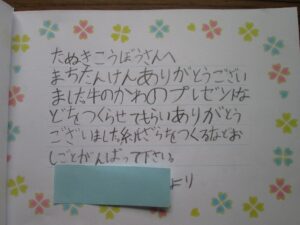 たぬきこうぼうさんへ
まちたんけんありがとうござい
ました牛のかわのプレゼントな
どをつくらせてもらいありがとう
ございました糸ざらをつくるなどお
しごとがんばって下さい。
より